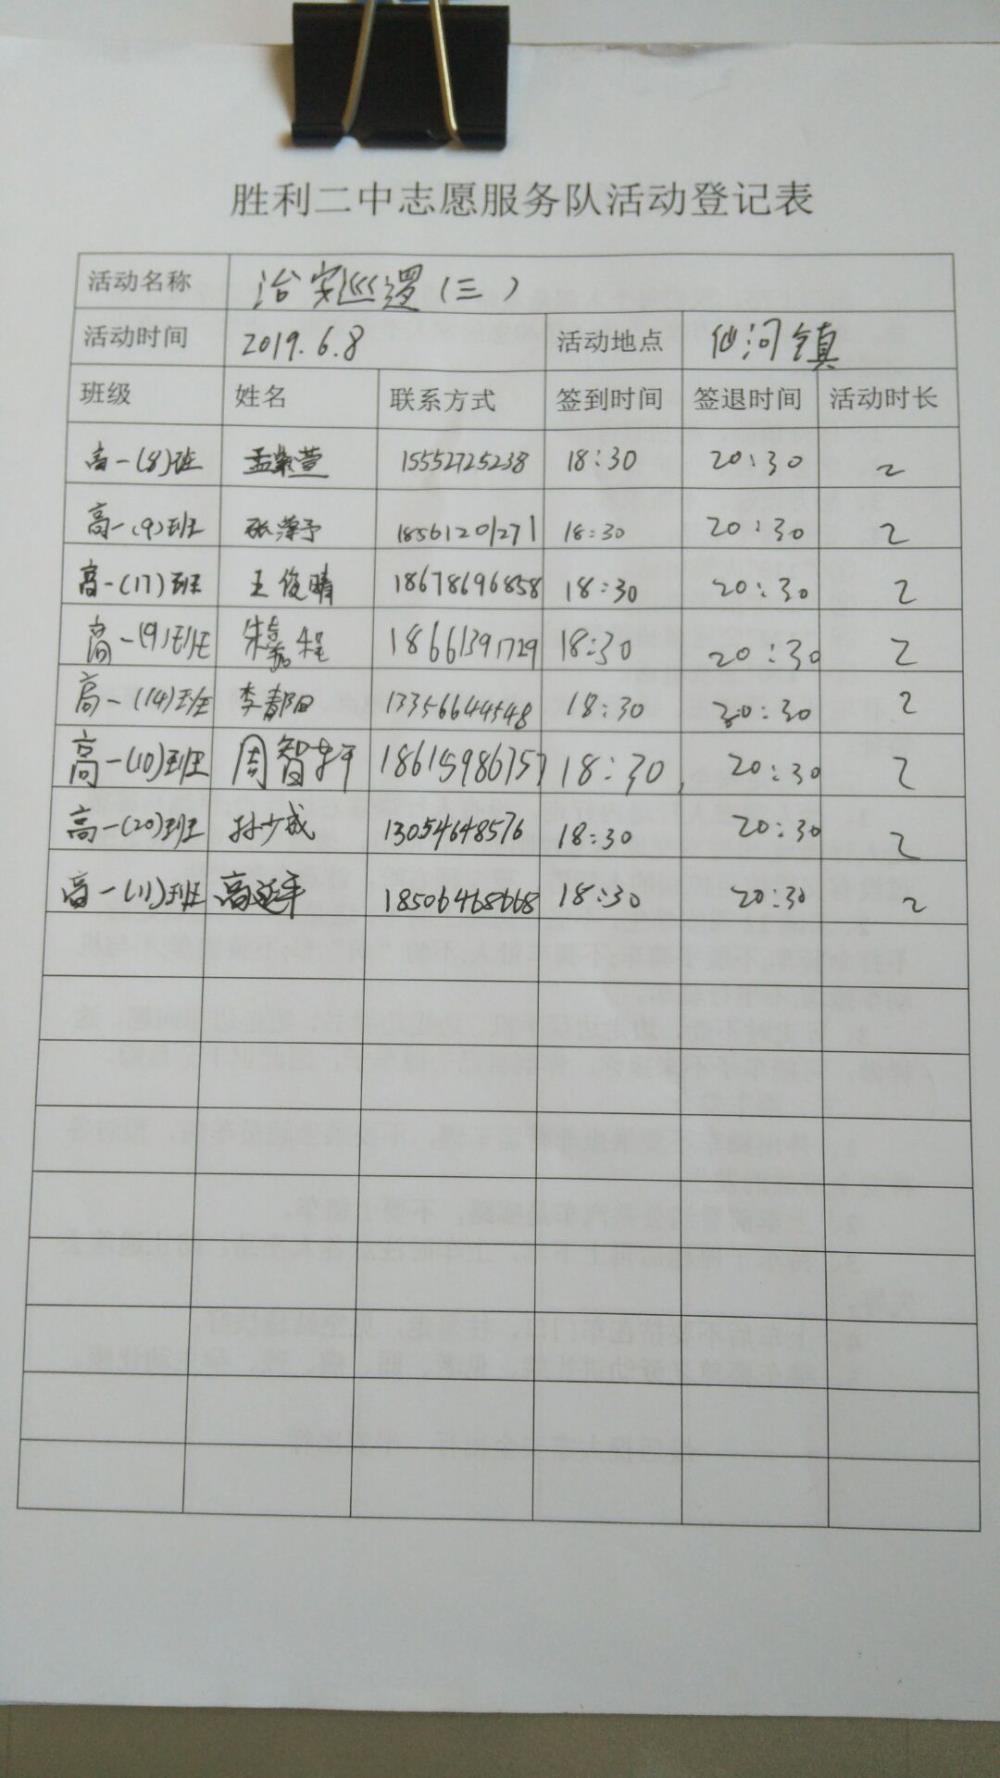 胜利二中志愿服务队活动登记表
活动名称 治安巡逻（三）
活动时间 2019.6.8 活动地点 仙河镇
班级 姓名 联系方式 签到时间 签退时间 活动时长
高一(8)班 孟紫萱 15552725238 18:30 20:30 2
高一(9)班 张 予 18561201271 18:30 20:30 2
高一(17)班 王俊晴 18678696858 18:30 20:30 2
高一(9)班 朱嘉程 18661391729 18:30 20:30 2
高一(14)班 李郜阳 13356644548 18:30 20:30 2
高一(10)班 周智轩 18615986757 18:30 20:30 2
高一(20)班 孙少成 13054648576 18:30 20:30 2
高一(11)班 高延平 18506468668 18:30 20:30 2